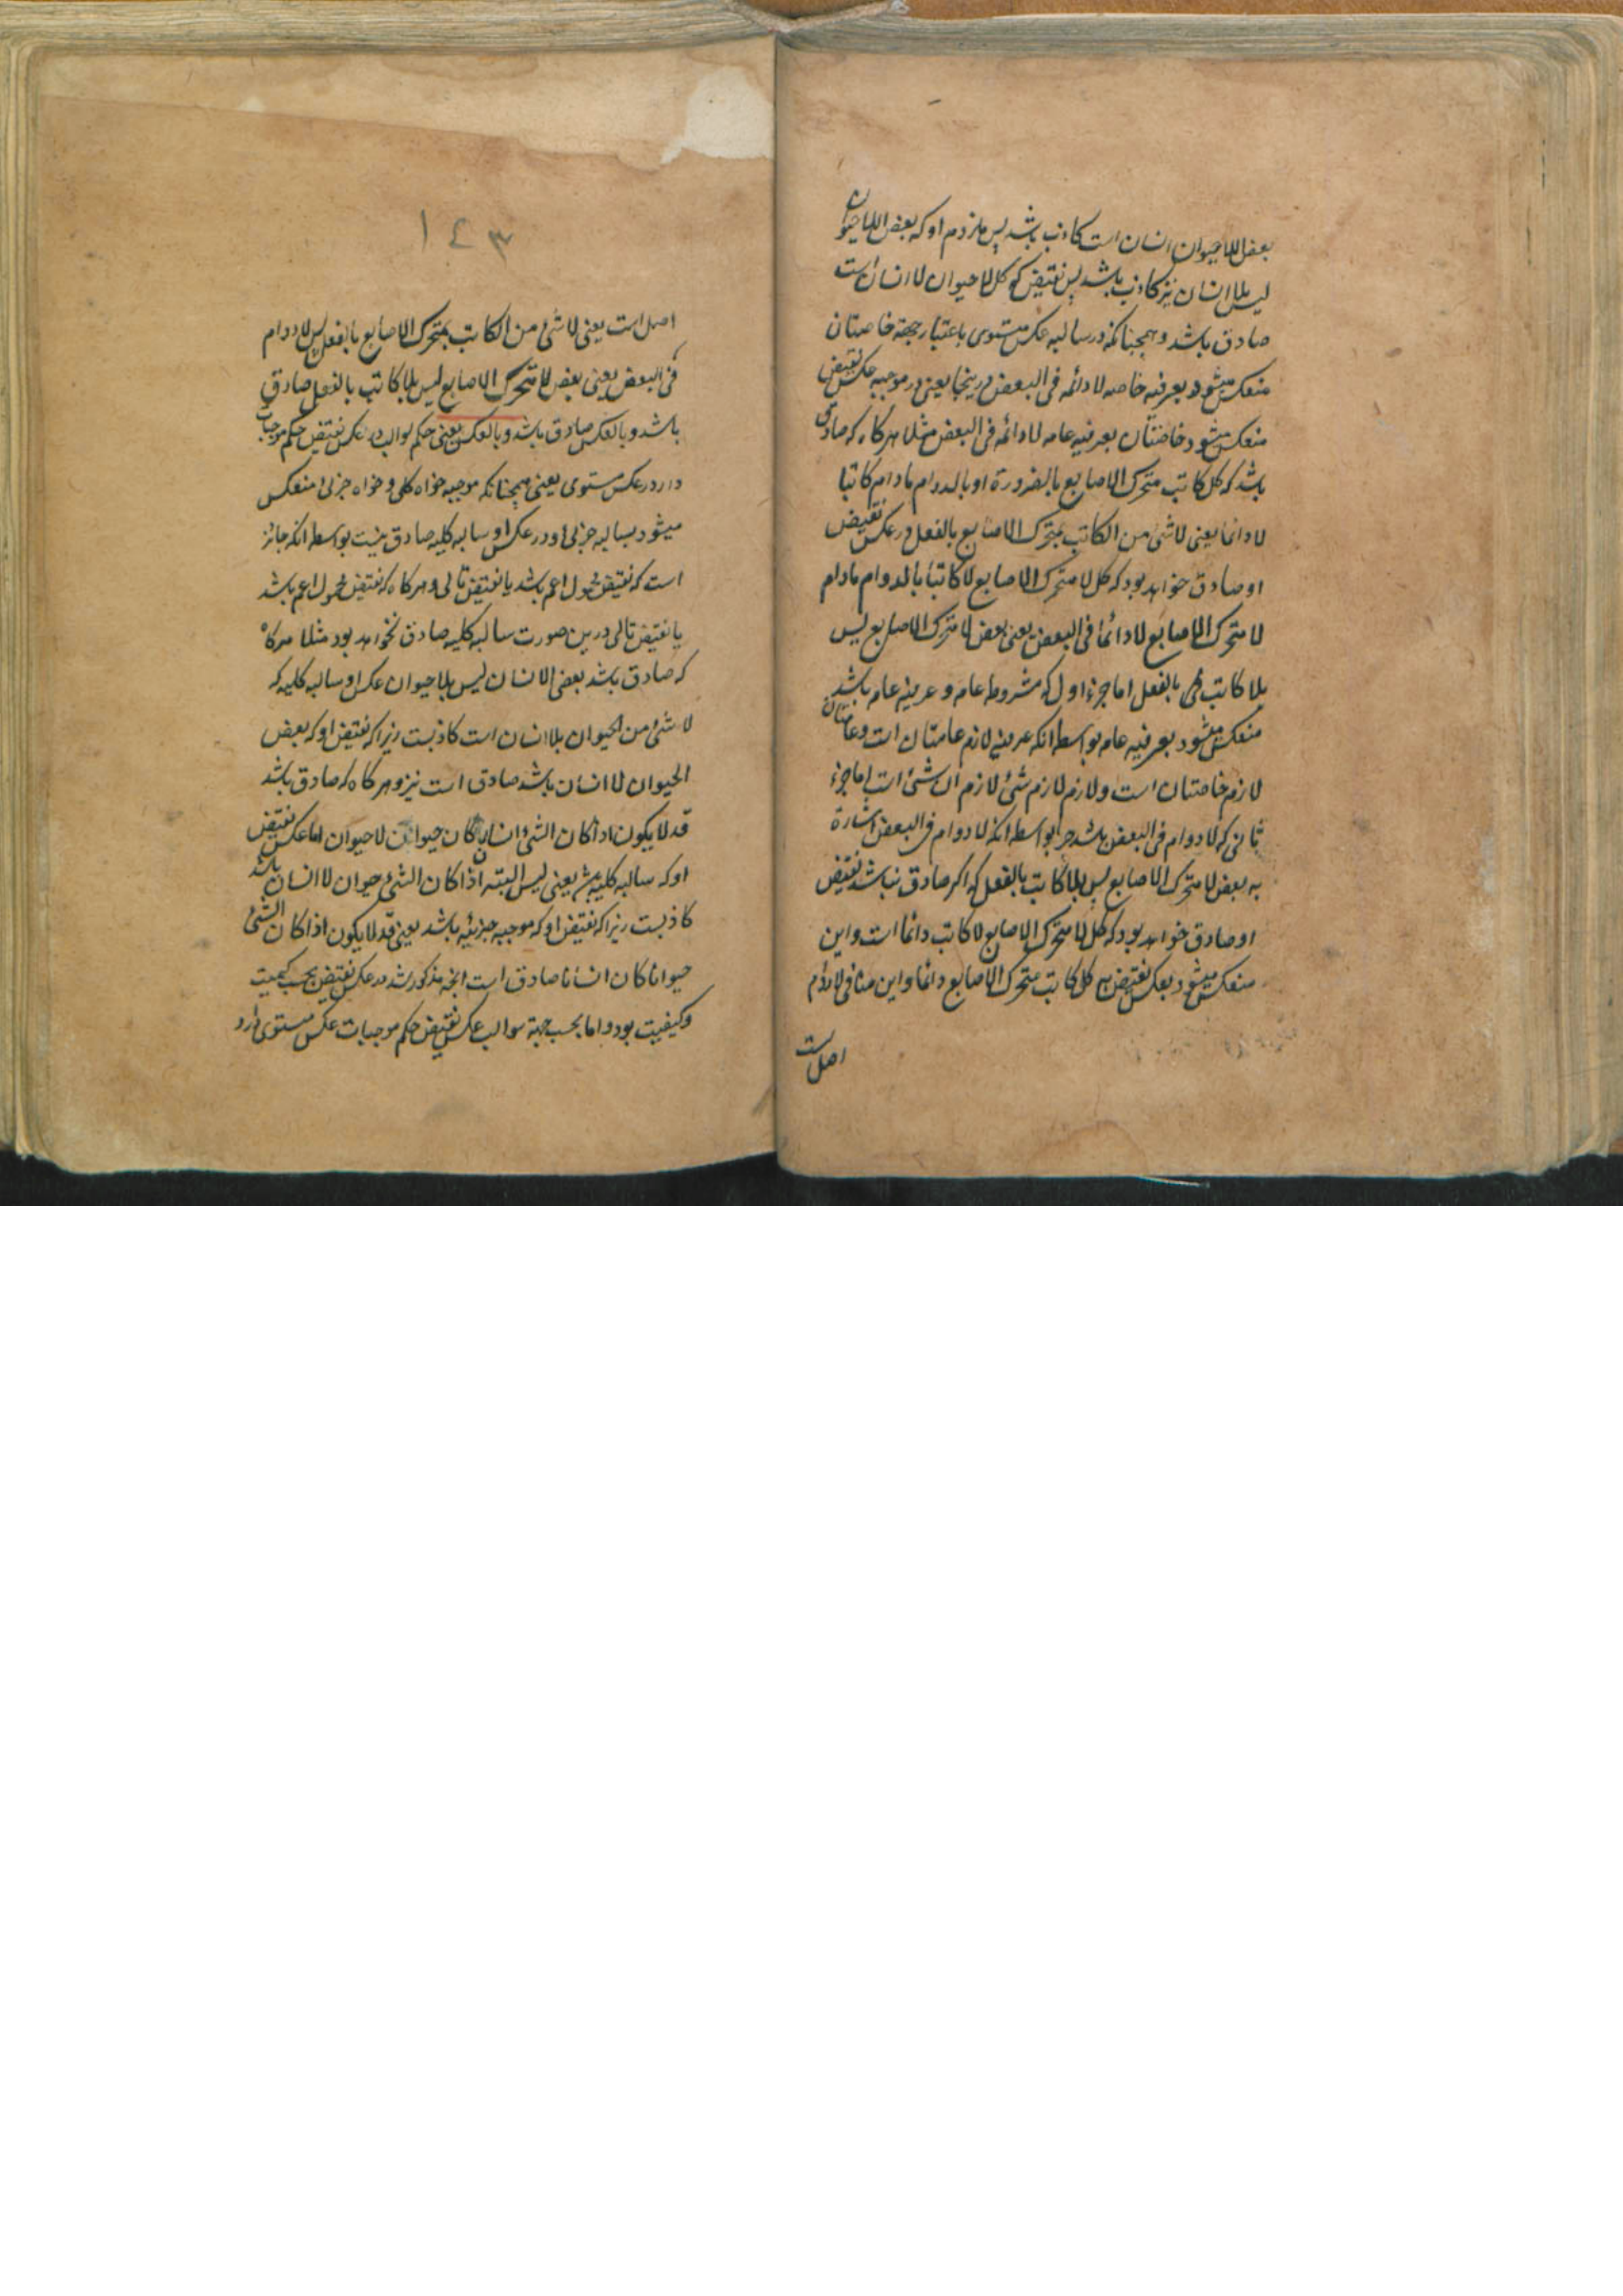 بعض اللاحیوان انسان است کاذب باشد پس ملزوم او که بعض اللاحیوان
لیس بلا انسان نیز کاذب باشد پس نقیض که کل لاحیوان لاانسان است
صادق باشد و همچنانکه در سالبه عکس مستوی باعتبار جهة خاصتان
منعکس میشود بعرفیه خاصه لادائمه فی البعض درینجا یعنی در موجبه عکس نقیض
منعکس میشود خاصتان بعرفیه عامه لادائمه فی البعض مثلا هرکاه که صادق
باشد که کل کاتب متحرک الاصابع بالضرورة او بالدوام مادام کاتبا
لادائما یعنی لاشئ من الکاتب بمتحرک الاصابع بالفعل در عکس نقیض
او صادق خواهد بود که کل لا متحرک الاصابع لاکاتبا بالدوام مادام
لا متحرک الاصابع لادائما فی البعض یعنی بعض لا متحرک الاصابع لیس
بلا کاتب بالفعل اما جزء اول که مشروطه عامه و عرفیه عامه باشد
منعکس میشود بعرفیه عامه بواسطه انکه عرفیه لازم عامتان است و عامتان
لازم خاصتان است و لازم لازم شئ لازم ان شئ است اما جزء
ثانی که لادوام فی البعض باشد جرا بواسطه انکه لادوام فی البعض اشارة
به بعض لا متحرک الاصابع لیس بلا کاتب بالفعل که اکر صادق نباشد نقیض
او صادق خواهد بود که کل لا متحرک الاصابع لاکاتب دائما است و این
منعکس میشود بعکس نقیض کل کاتب متحرک الاصابع دائما و این منافی لادوام
اصل است
۱٤۳
اصل است یعنی لاشئ من الکاتب بمتحرک الاصابع بالفعل پس لادوام
فی البعض یعنی بعض لا متحرک الاصابع لیس بلا کاتب بالفعل صادق
باشد و بالعکس صادق باشد و بالعکس یعنی حکم سوالب در عکس نقیض حکم موجبات
دارد در عکس مستوی یعنی همچنانکه موجبه خواه کلی و خواه جزئی منعکس
میشود بسالبه جزئی و در عکس او سالبه کلیه صادق نیست بواسطه انکه جائز
است که نقیض محمول اعم باشد یا نقیض تالی و هرکاه که نقیض محمول اعم باشد
یا نقیض تالی درین صورت سالبه کلیه صادق نخواهد بود مثلا هرکاه
که صادق باشد بعض الانسان لیس بلاحیوان عکس او سالبه کلیه که
لاشئ من الحیوان بلاانسان است کاذبست زیرا که نقیض او که بعض
الحیوان لاانسان باشد صادق است نیز و هرکاه که صادق باشد
قد لایکون اذا کان الشئ انسان کان حیوان لاحیوان اما عکس نقیض
او که سالبه کلیه باشد یعنی لیس البته اذا کان الشئ حیوان لاانسان
کاذبست زیرا که نقیض او که موجبه جزئیه باشد یعنی قد لایکون اذا کان الشئ
حیوانا کان انسانا صادق است انجه مذکور شد در عکس نقیض بحسب کمیت
و کیفیت بود و اما بحسب جهة سوالب عکس نقیض حکم موجبات عکس مستوی دارد